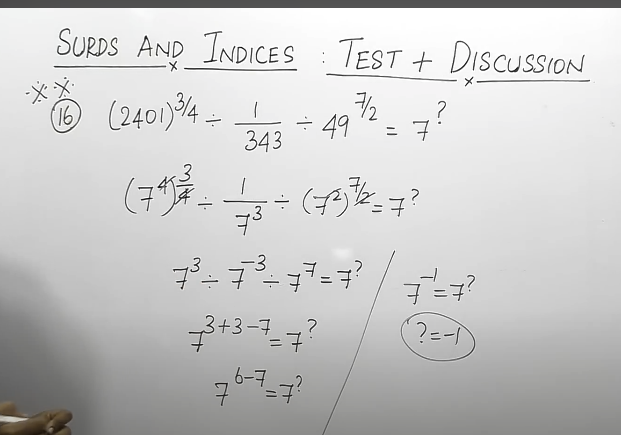 SURDS AND INDICES : TEST + DISCUSSION
16 (2401)^3/4 ÷ 1/343 ÷ 49^7/2 = 7^?
(7^4)^3/4 ÷ 1/7^3 ÷ (7^2)^7/2 = 7^?
7^3 ÷ 7^-3 ÷ 7^7 = 7^?
7^3+3-7 = 7^?
7^6-7 = 7^?
7^-1 = 7^?
? = -1